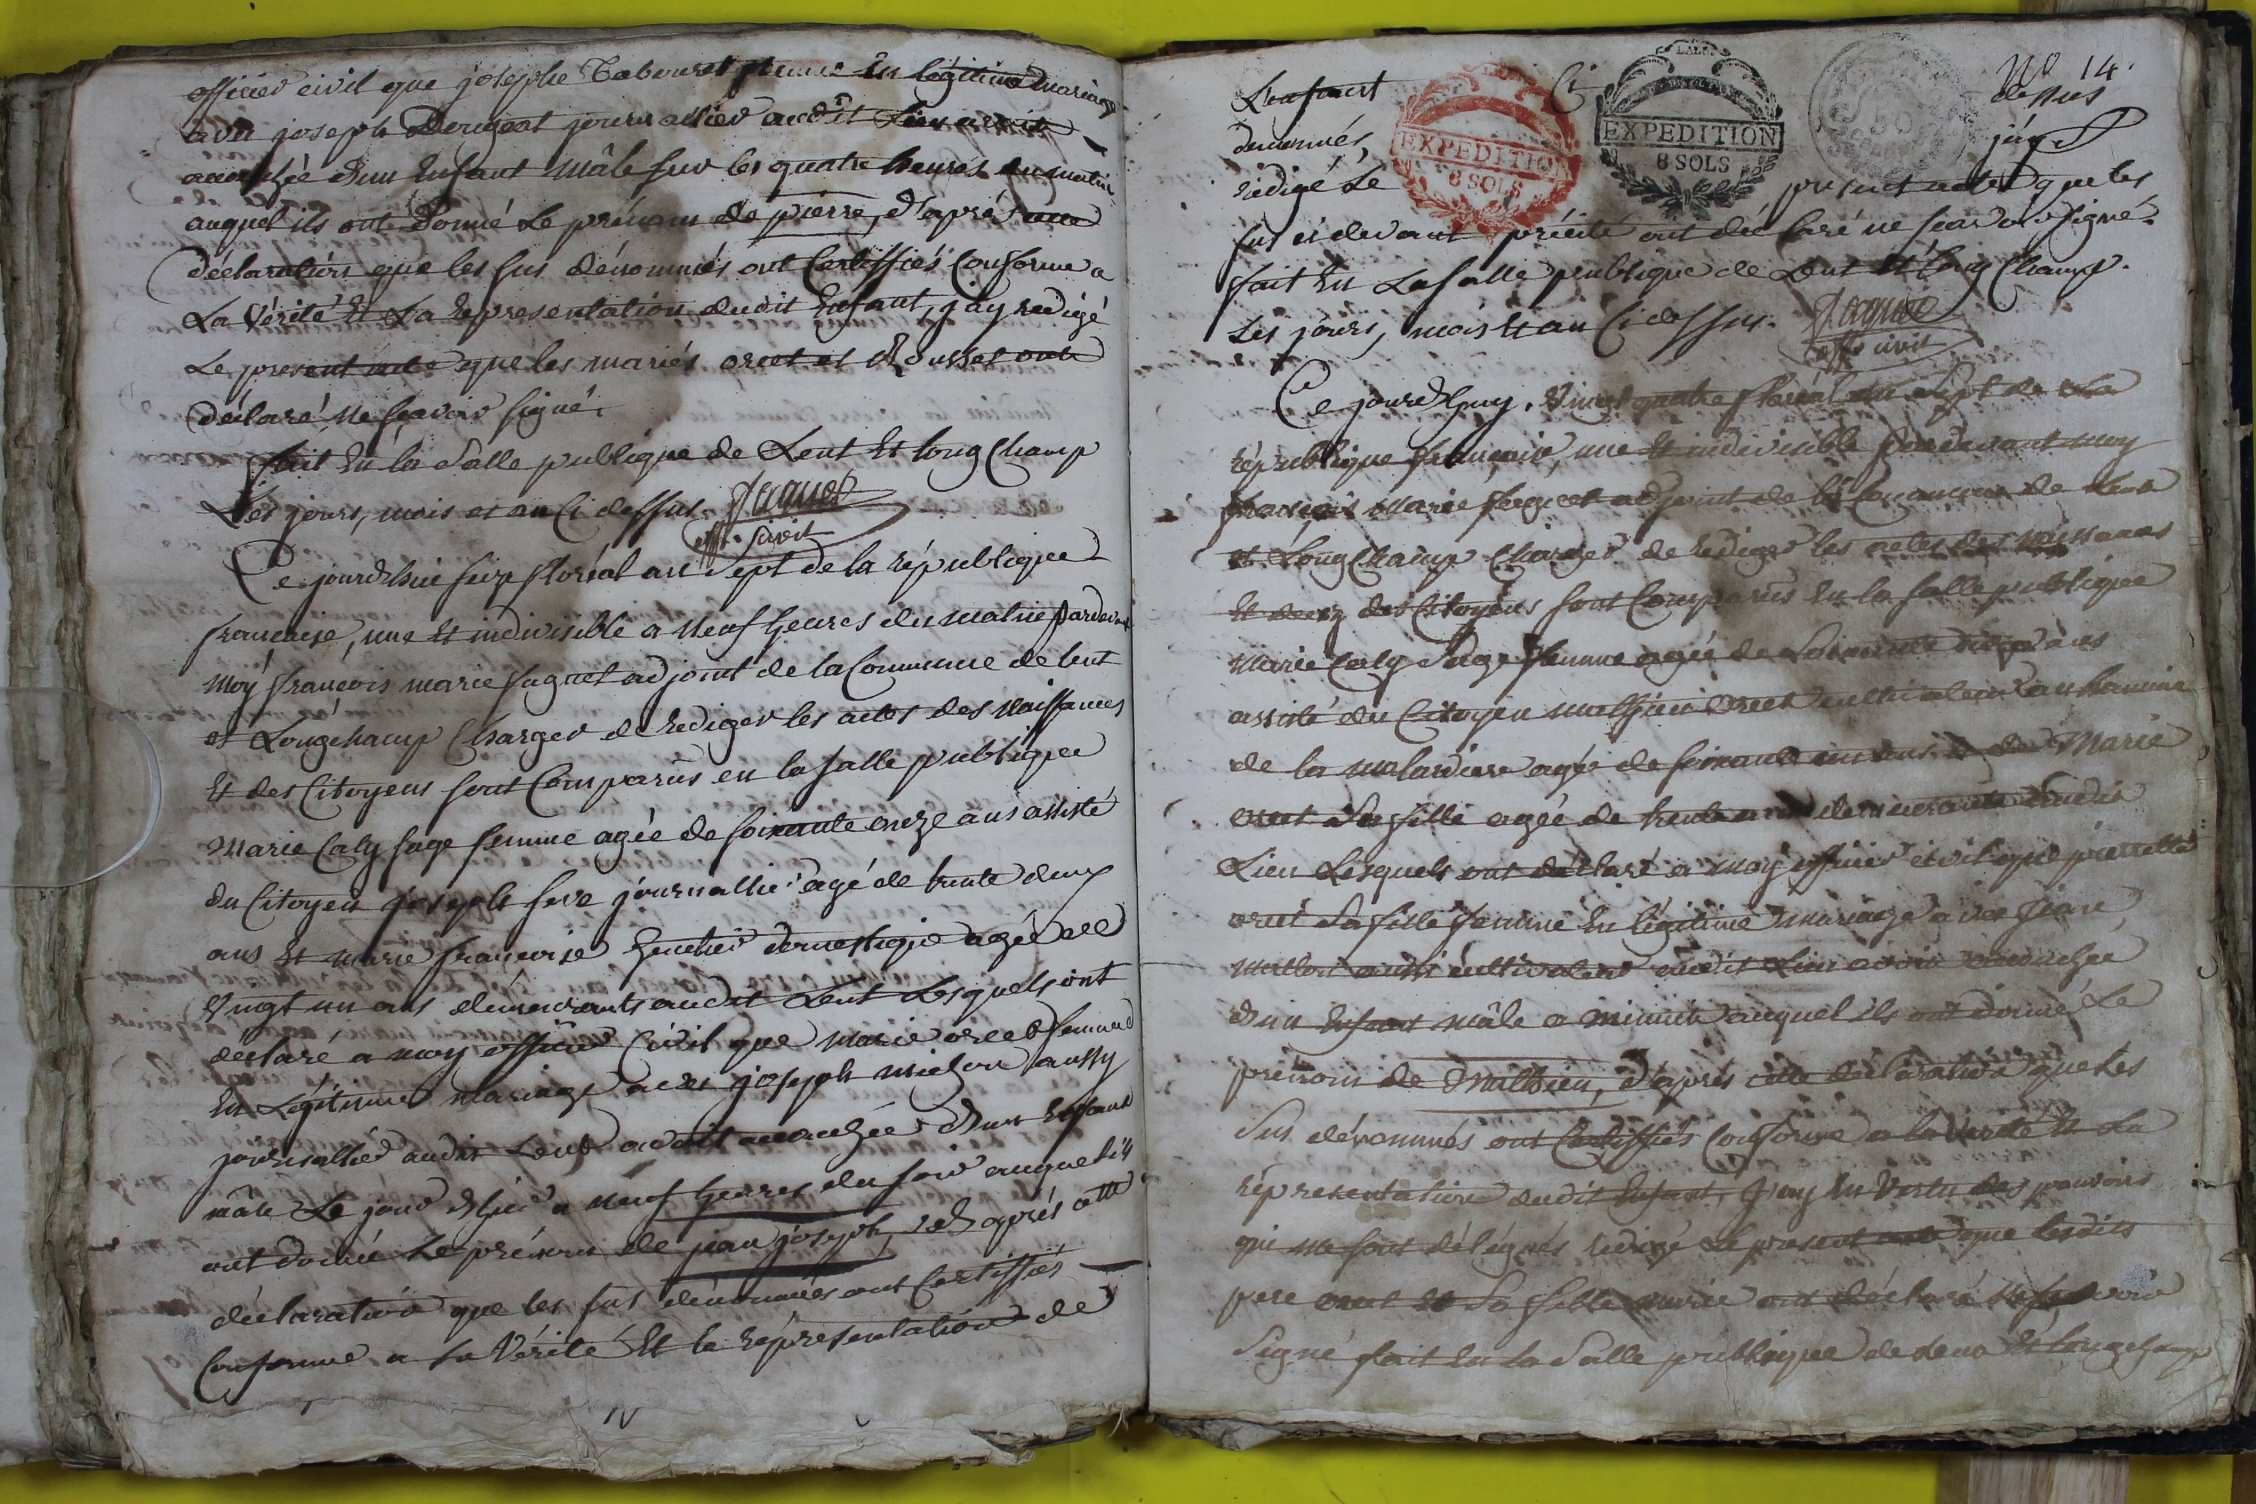 officier civil que josephe Tabouret femme En légitime mariage
avec joseph Dougeat journallier audit Lieu avoit
accouchée d'un Enfant mâle sur les quatre heures du matin
auquel ils ont Donné Le prénom de pierre, d'après une
déclaration que les sus dénommés ont Certiffiés Conforme a
La Vérité Et La représentation dudit Enfant, j'ay rédigé
Le présent acte que les mariés orcet et Rousset ont
déclaré ne sçavoir signé.
fait En la Salle publique de Lent Et long Champ
Les jours, mois et an Ci dessus. Faguet
off. Civil
Ce jourd'hui seize floréal an Sept de la république
française, une Et indivisible a Neuf heures du matin pardevant
moÿ françois marie faguet adjoint de la Commune de lent
et Longchamp Charger de rediger les actes des naissances
Et des Citoyens sont Comparus en la salle publique
Marie Caly sage femme agée de soixante onze ans assisté
du Citoyen joseph five journallier agé de trente deux
ans Et marie françoise domestique agée de
vingt un ans demeurants audit Lent Lesquels ont
déclaré a moy officier Civil que Marie orcet femme
En Légitime mariage avec joseph michon aussy
journallier audit Lent avoit accouchée d'un Enfant
mâle Le jour d'hier a neuf heures du soir auquel ils
ont donné Le prénom de jean joseph, et d'après cette
déclaration que les sus dénommés ont Certiffiés
Conforme a La Vérité Et la représentation de
No 14.
L'enfant Ci dessus
dénommés, j'ay
EXPEDITION
8 SOLS
EXPEDITION
8 SOLS
50
rédigé Le présent acte que les
sus ci devant précité ont déclaré ne sçavoir signé.
fait En La salle publique de Lent Et long Champ.
Les jours, mois et an Ci dessus. Faguet
off. civil
Ce jourd'huy, Vingt quatre floréal an Sept de La
république française, une Et indivisible pardevant moy
françois Marie faguet adjoint de la Commune de Lent
et Long Champ Charger de rediger les actes des naissances
Et des Citoyens sont Comparus En la salle publique
Marie Caly Sage femme agée de Soixante onze ans
assisté du Citoyen matthieu Orcet cultivateur au hameau
de la malardiere agé de soixante un ans Et de Marie
orcet Sa fille agée de trente ans demeurants audit
Lieu Lesquels ont déclaré a moy officier civil que pierrette
orcet Sa fille femme En légitime mariage avec pierre
aussi cultivateur audit Lieu avoir accouchée
d'un Enfant mâle a minuit auquel ils ont donné Le
prénom de Matthieu, d'après cette déclaration que Les
Sus dénommés ont Certiffiés Conforme a la Vérité Et La
représentation dudit Enfant, j'ay En Vertu des pouvoirs
qui me sont délégués rédigé le present acte que lesdits
pere orcet Et Sa fille marie ont déclaré ne sçavoir
Signé fait En La Salle publique de Lent Et Longchamp